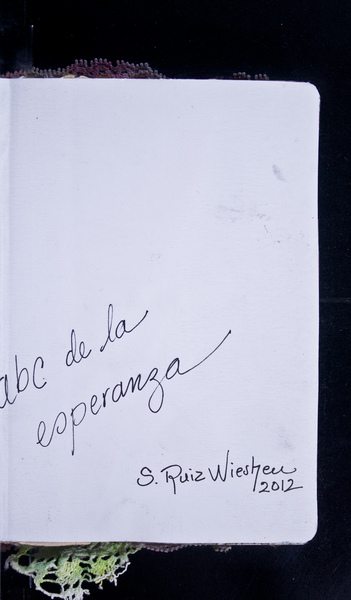 abc de la
esperanza
S. Ruiz Wiesheu
2012